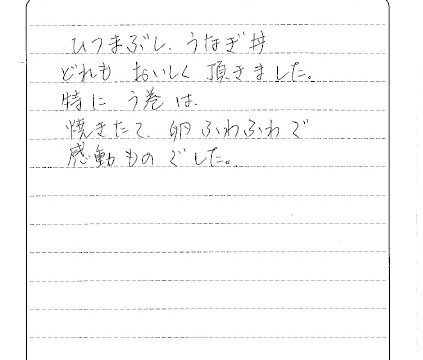 ひつまぶし、うなぎ丼
どれも おいしく 頂きました。
特に う巻 は、
焼きたて、卵 ふわふわ で
感動もの でした。